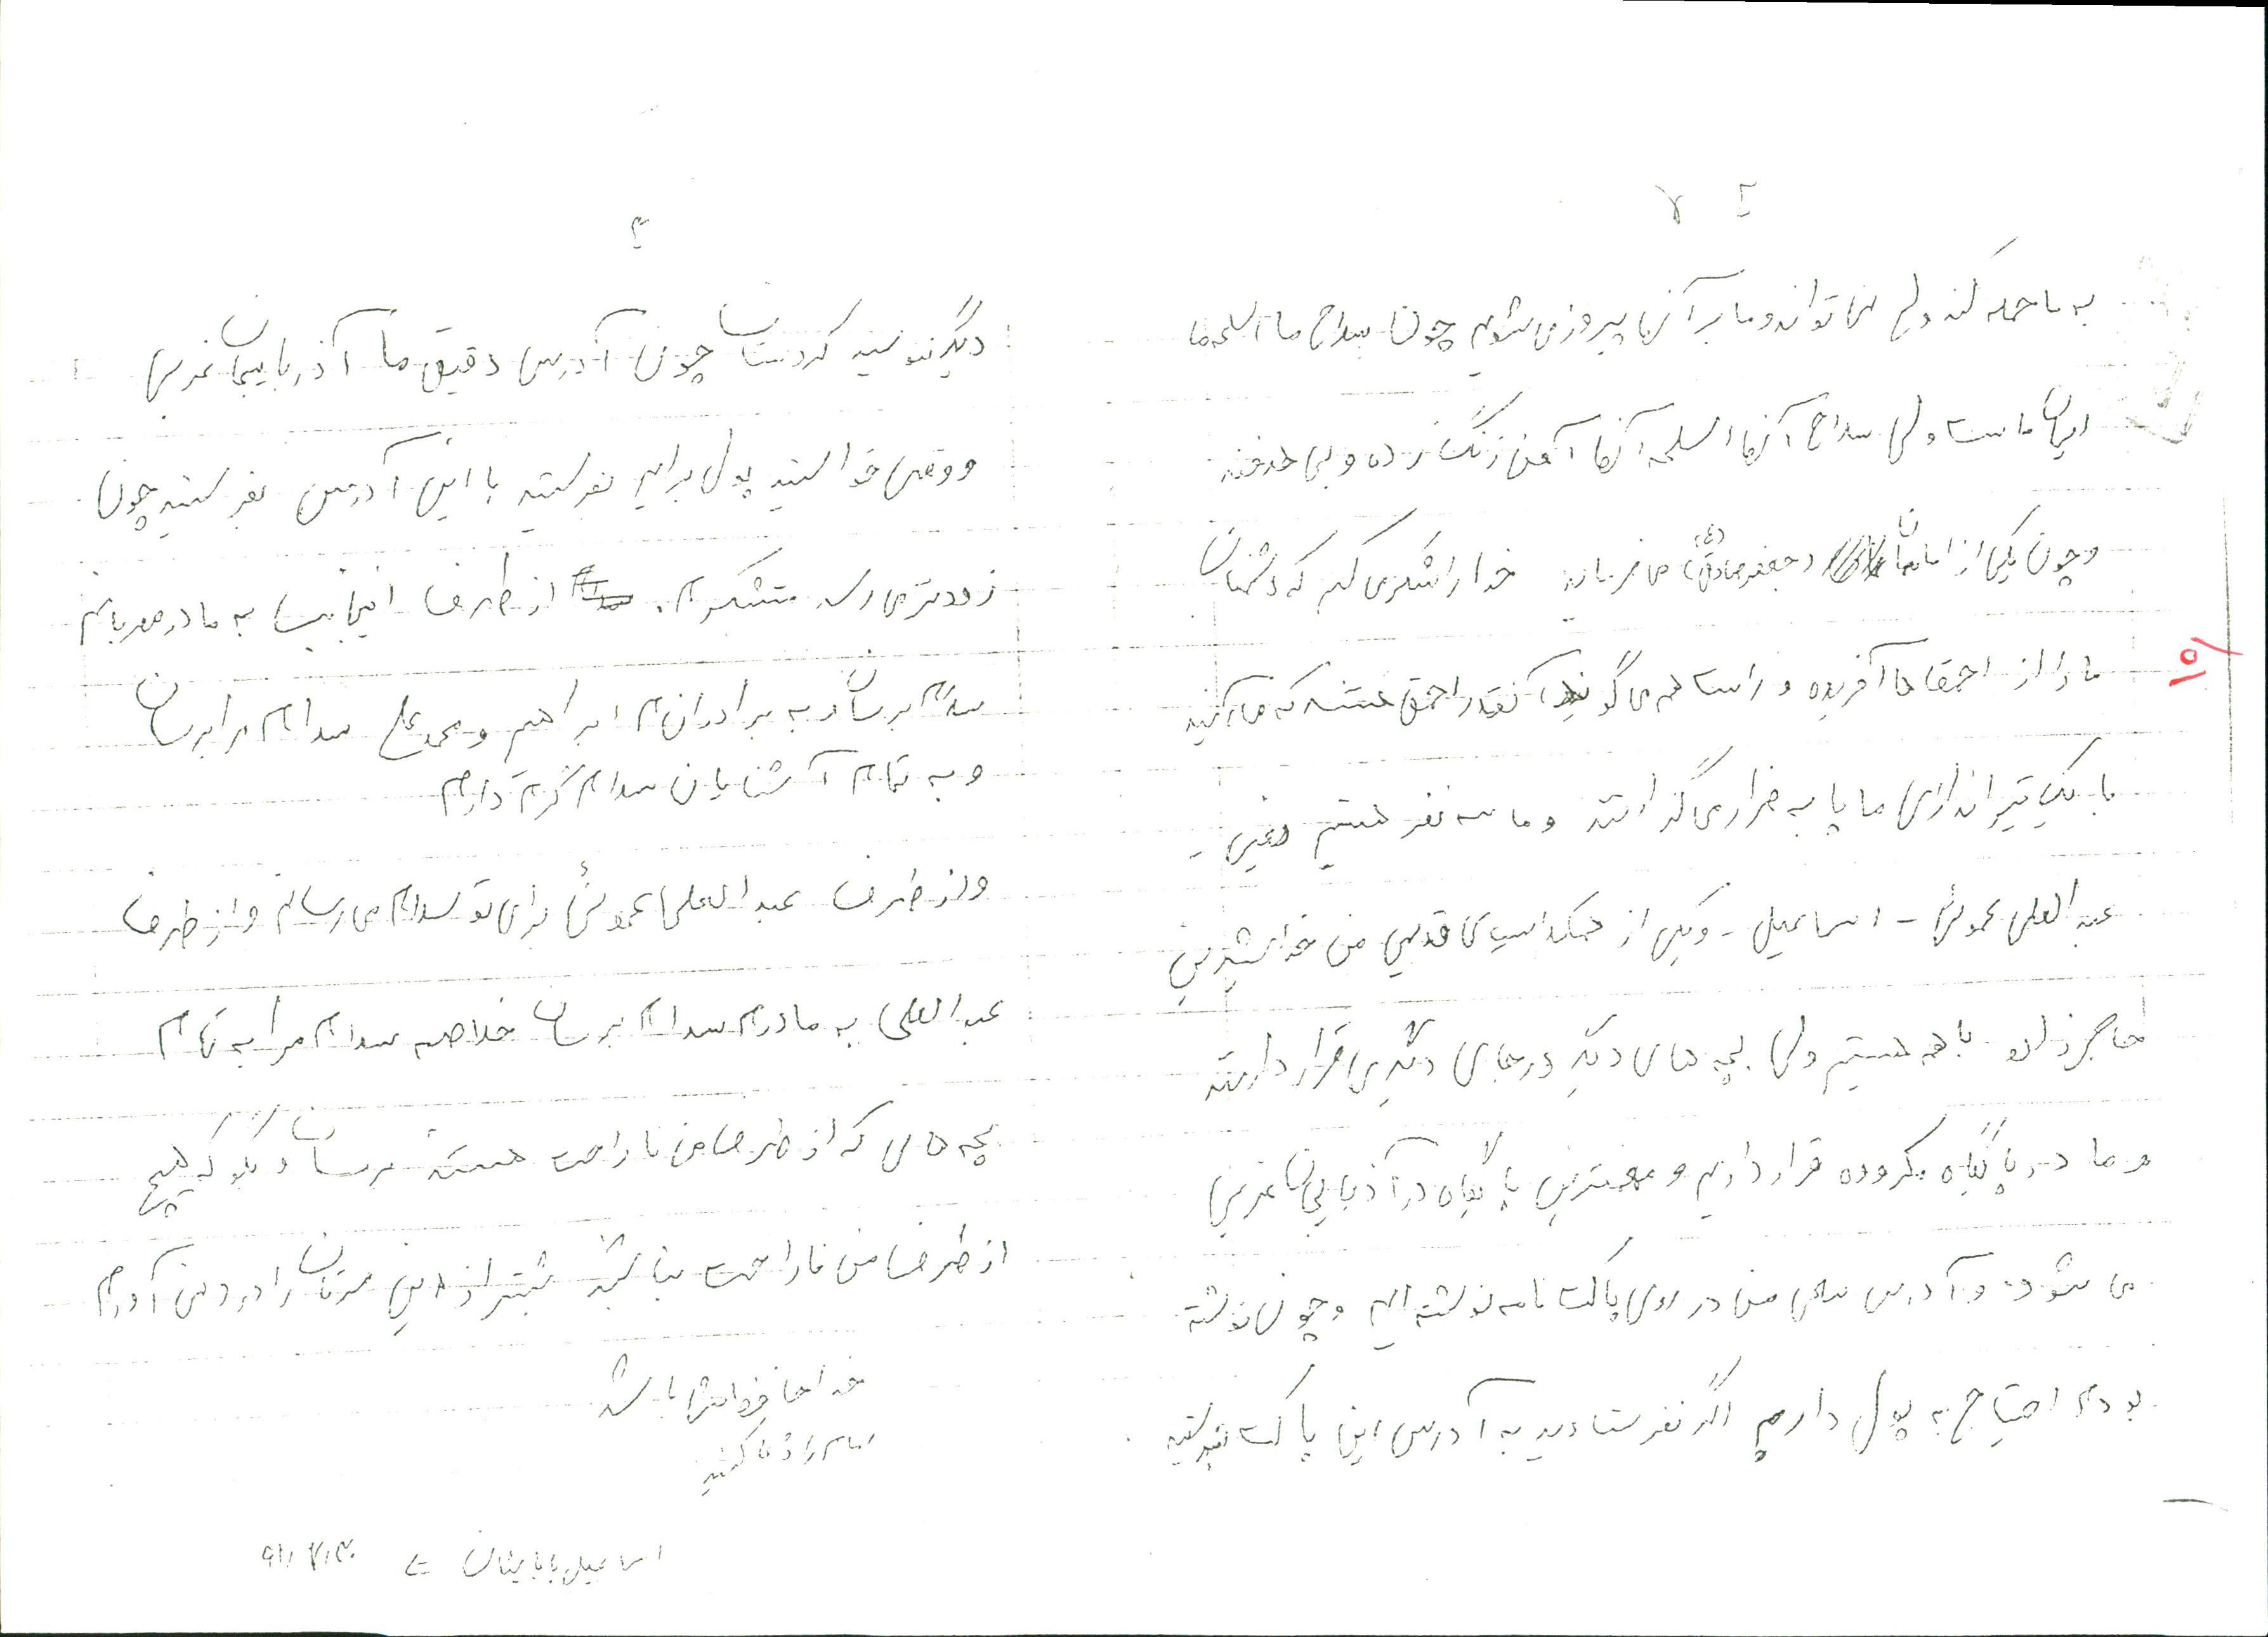 ۲
به ما حمله کند ولی نمی تواند و ما بر آنها پیروز می شویم چون سلاح ما اسلحه ما
ایمان ماست ولی سلاح آنها اسلحه آنها آهن زنگ زده و بی هدفند
و چون یکی از امامان ما (جعفر صادق (ع)) می فرماید خدا را شکر می کنم که دشمنان
ما را از احمق ها آفریده و راست هم می گویند آنقدر احمق هستند که فکر کنید
با یک تیراندازی ما پا به فرار می گذارند و ما سه نفر هستیم یعنی -
عبدالعلی عموئی - اسماعیل - و یکی از همکلاسیهای قدیمی من خدا
با هم هستیم ولی بچه های دیگر در جای دیگری قرار دارند
و ما در پایگاه قرار داریم و مهمترین پایگاه در آذربایجان غربی
می شود و آدرس من در روی پاکت نامه نوشته ایم و چون نوشته
بودم احتیاج به پول دارم اگر نفرستادید به آدرس این پاکت بفرستید
۳
دیگر ننویسید کردستان چون آدرس دقیق ما آذربایجان غربی
و وقتی خواستید پول برایم بفرستید با این آدرس بفرستید چون
زودتر می رسد متشکرم. از طرف اینجانب به مادر مهربانم
سلام برسان و به برادرانم ابراهیم و محمد علی سلام مرا برسان
و به تمام آشنایان سلام گرم دارم
و از طرف عبدالعلی عموئی برای تو سلام می رسانم و از طرف
عبدالعلی به مادرم سلام برسان خلاصه سلام مرا به تمام
بچه های که از طرف من ناراحت هستند برسان و بگو که هیچ
از طرف من ناراحت نباشند بیشتر از این سرتان را درد نمی آورم
خدا حافظ شما باشد
امام را دعا کنید
اسماعیل بابائیان